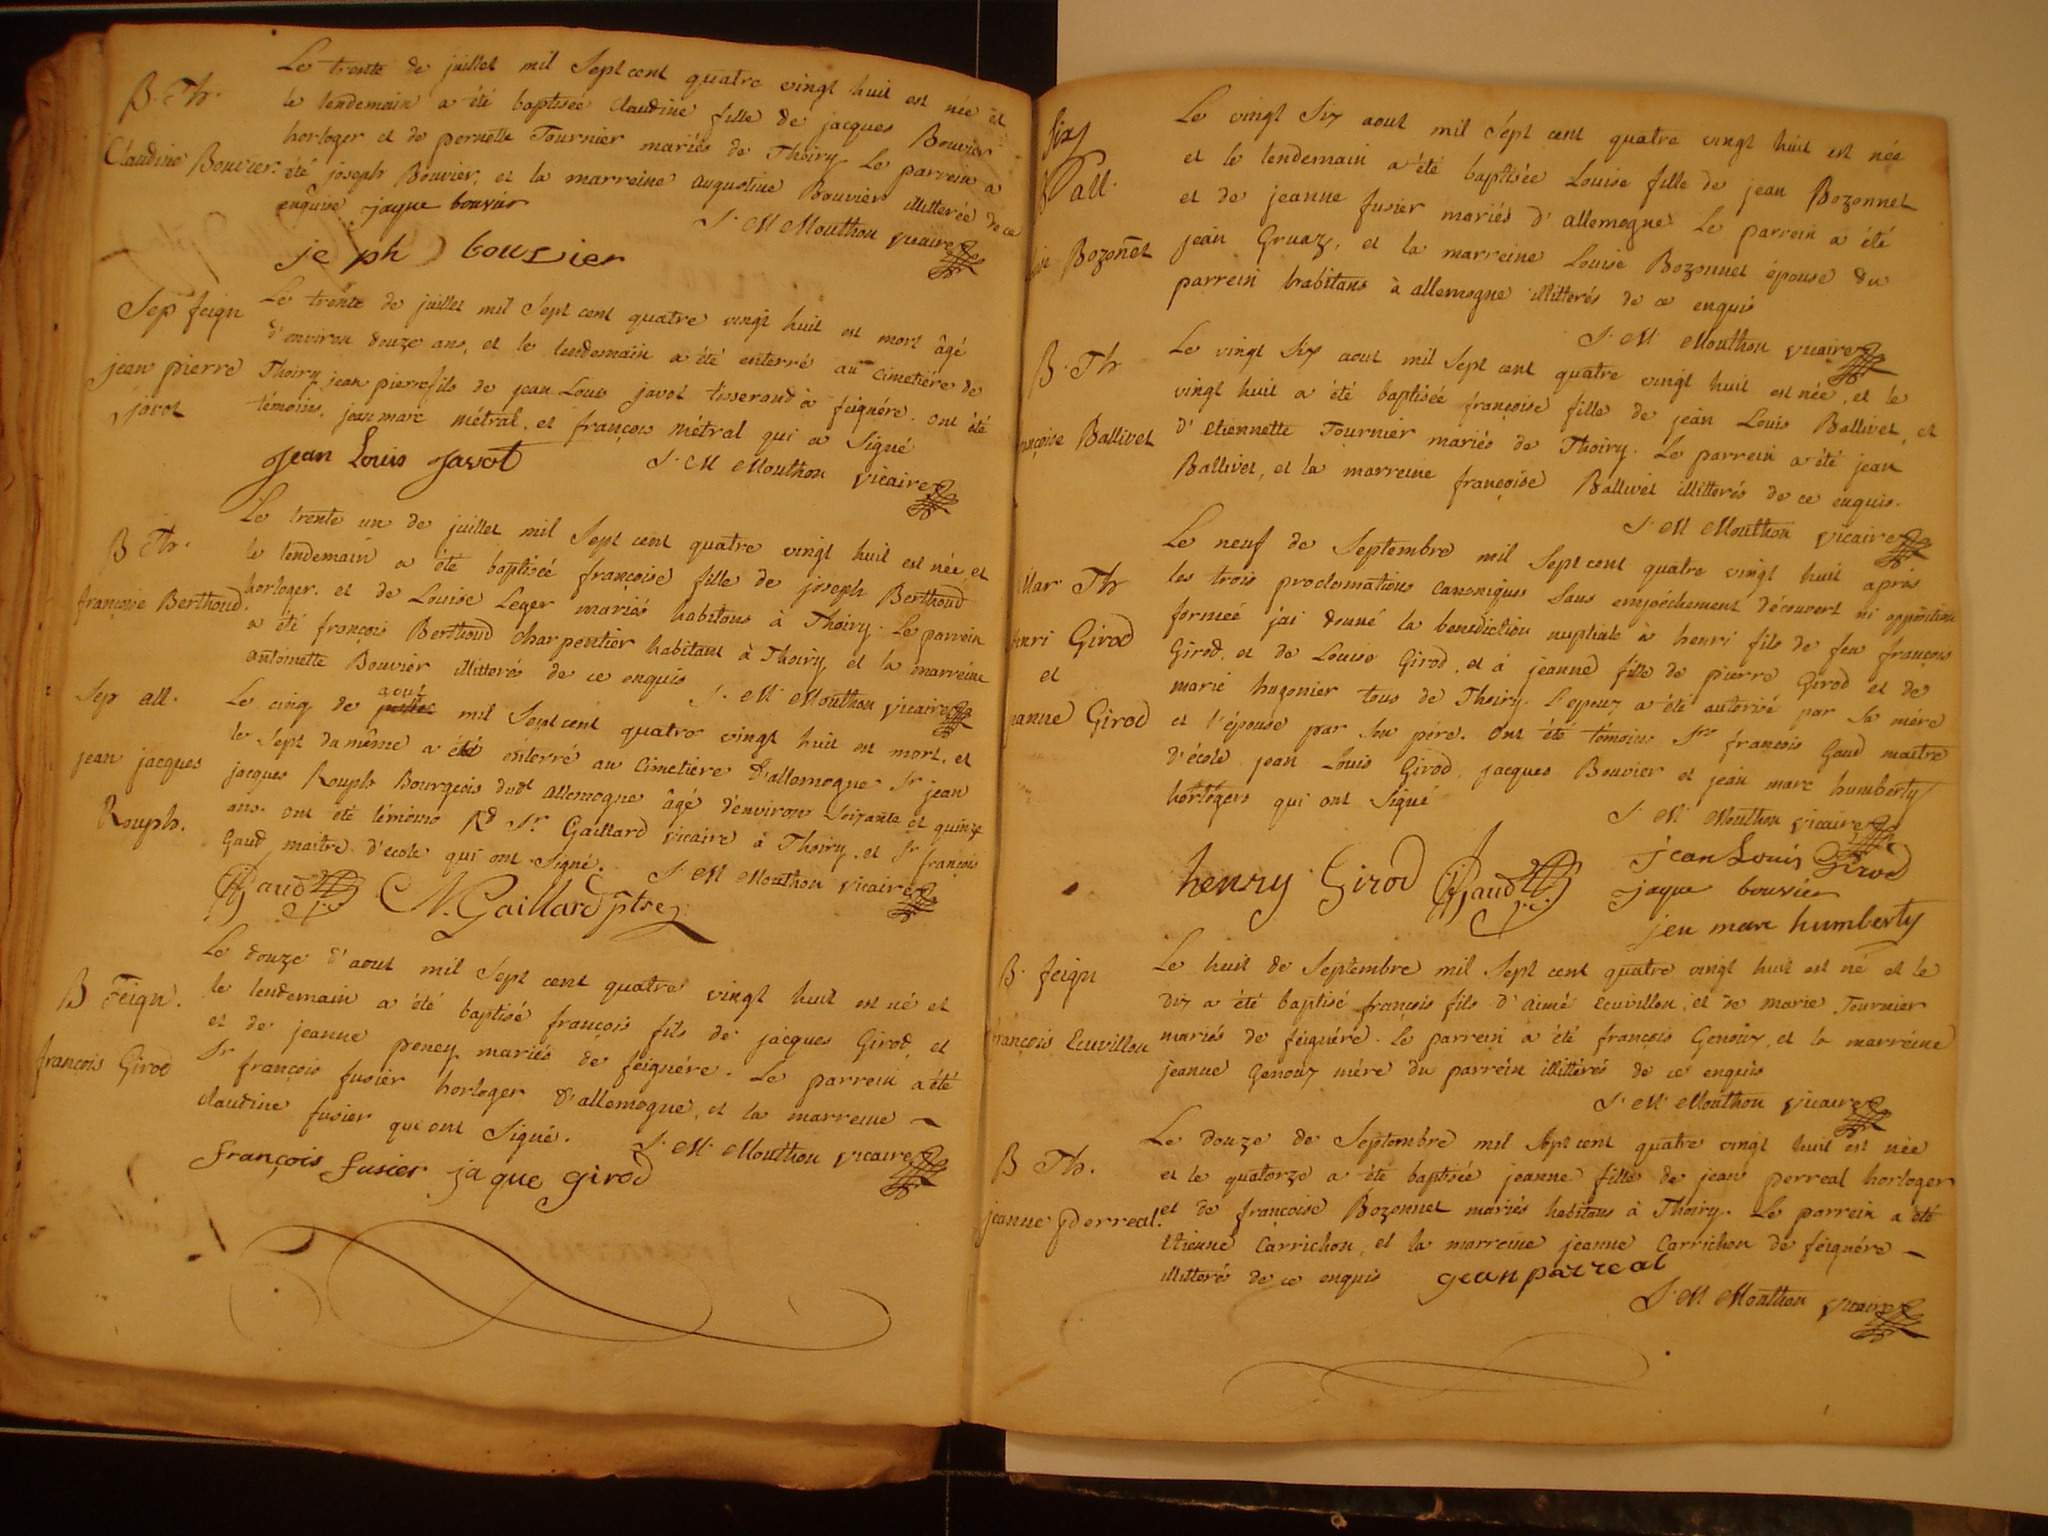 B. Th.
Claudine Bouvier.
Le trente de juillet mil Sept cent quatre vingt huit est née et
le lendemain a été baptisée Claudine fille de jacques Bouvier
horloger et de pernette Tournier mariés de Thoiry. Le parrein a
été joseph Bouvier, et la marreine augustine Bouvier illitterée de ce
enquise jaque bouvier
J. M Mouthon vicaire
je ph bouvier
Sep feign
jean pierre
javot
Le trente de juillet mil Sept cent quatre vingt huit est mort âgé
d'environ douze ans, et le lendemain a été enterré au cimetiére de
Thoiry jean pierre fils de jean Louis javot tisserand à feignére. ont été
témoins, jean marc métral, et françois métral qui a Signé
jean Louis javot
J. M Mouthon vicaire
B Th.
françoise Berthoud.
Le trente un de juillet mil Sept cent quatre vingt huit est née, et
le lendemain a été baptisée françoise fille de joseph Berthoud
horloger, et de Louise Leger mariés habitans à Thoiry. Le parrein
a été françois Berthoud charpentier habitant à Thoiry, et la marreine
antoinette Bouvier illitterés de ce enquis
J. M Mouthon vicaire
Sep all.
jean jacques
Rouph.
aout
Le cinq de juillet mil Sept cent quatre vingt huit est mort, et
le Sept du même a été enterré au Cimetiére d'allemogne Sr jean
jacques Rouph Bourgeois dudt allemogne âgé d'environ Soixante et quinze
ans. ont été témoins Rd Sr Gaillard vicaire à Thoiry, et Sr françois
Gaud maitre d'ecole qui ont Signé.
J. M Mouthon vicaire
Gaud N. Gaillard ptre
B Feign.
françois Girod
Le douze d'aout mil Sept cent quatre vingt huit est né et
le lendemain a été baptisé françois fils de jacques Girod, et
et de jeanne poncy mariés de feignére. Le parrein a été
Sr françois fusier horloger d'allemogne, et la marreine
claudine fusier qui ont Signé.
J. M Mouthon vicaire
françois fusier jaque girod
Six
B all.
Bozonet
Le vingt Six aout mil Sept cent quatre vingt huit est née
et le lendemain a été baptisée Louise fille de jean Bozonnet
et de jeanne fusier mariés d'allemogne. Le parrein a été
jean Gruaz, et la marreine Louise Bozonnet épouse du
parrein habitans à allemogne illitterés de ce enquis
J. M Mouthon vicaire
B. Th
nçoise Ballivet
Le vingt Six aout mil Sept cent quatre vingt huit est née, et le
vingt huit a été baptisée françoise fille de jean Louis Ballivet, et
d'etiennette Tournier mariés de Thoiry. Le parrein a été jean
Ballivet, et la marreine françoise Ballivet illitterés de ce enquis.
J. M Mouthon vicaire
Mar Th
enri Girod
et
eanne Girod
Le neuf de Septembre mil Sept cent quatre vingt huit après
les trois proclamations canoniques Sans empéchement découvert ni opposition
formeé j'ai donné la benediction nuptiale à henri fils de feu françois
Girod, et de Louise Girod, et à jeanne fille de pierre Girod et de
marie hugonier tous de Thoiry. L'epoux a été autorisé par Sa mére
et l'épouse par Son pére. Ont été témoins Sr françois Gaud maitre
d'école, jean Louis Girod, jacques Bouvier et jean marc humberty
horlogers qui ont Signé
J. M Mouthon vicaire
henry Girod Gaud jean Louis Girod
jaque bouvier
jeu marc humberty
B. feign
rançois Ecuvillon
Le huit de Septembre mil Sept cent quatre vingt huit est né et le
Dix a été baptisé françois fils d'aimé Ecuvillon, et de marie Tournier
mariés de feignére. Le parrein a été françois Genoux, et la marreine
jeanne Genoux mére du parrein illitterés de ce enquis
J. M Mouthon vicaire
B Th.
jeanne perreal.
Le douze de Septembre mil Sept cent quatre vingt huit est née
et le quatorze a été baptisée jeanne fille de jean perreal horloger
et de françoise Bozonnet mariés habitans à Thoiry. Le parrein a été
Etienne Carrichon, et la marreine jeanne Carrichon de feignére
illitterés de ce enquis jean parreal
J. M Mouthon vicaire